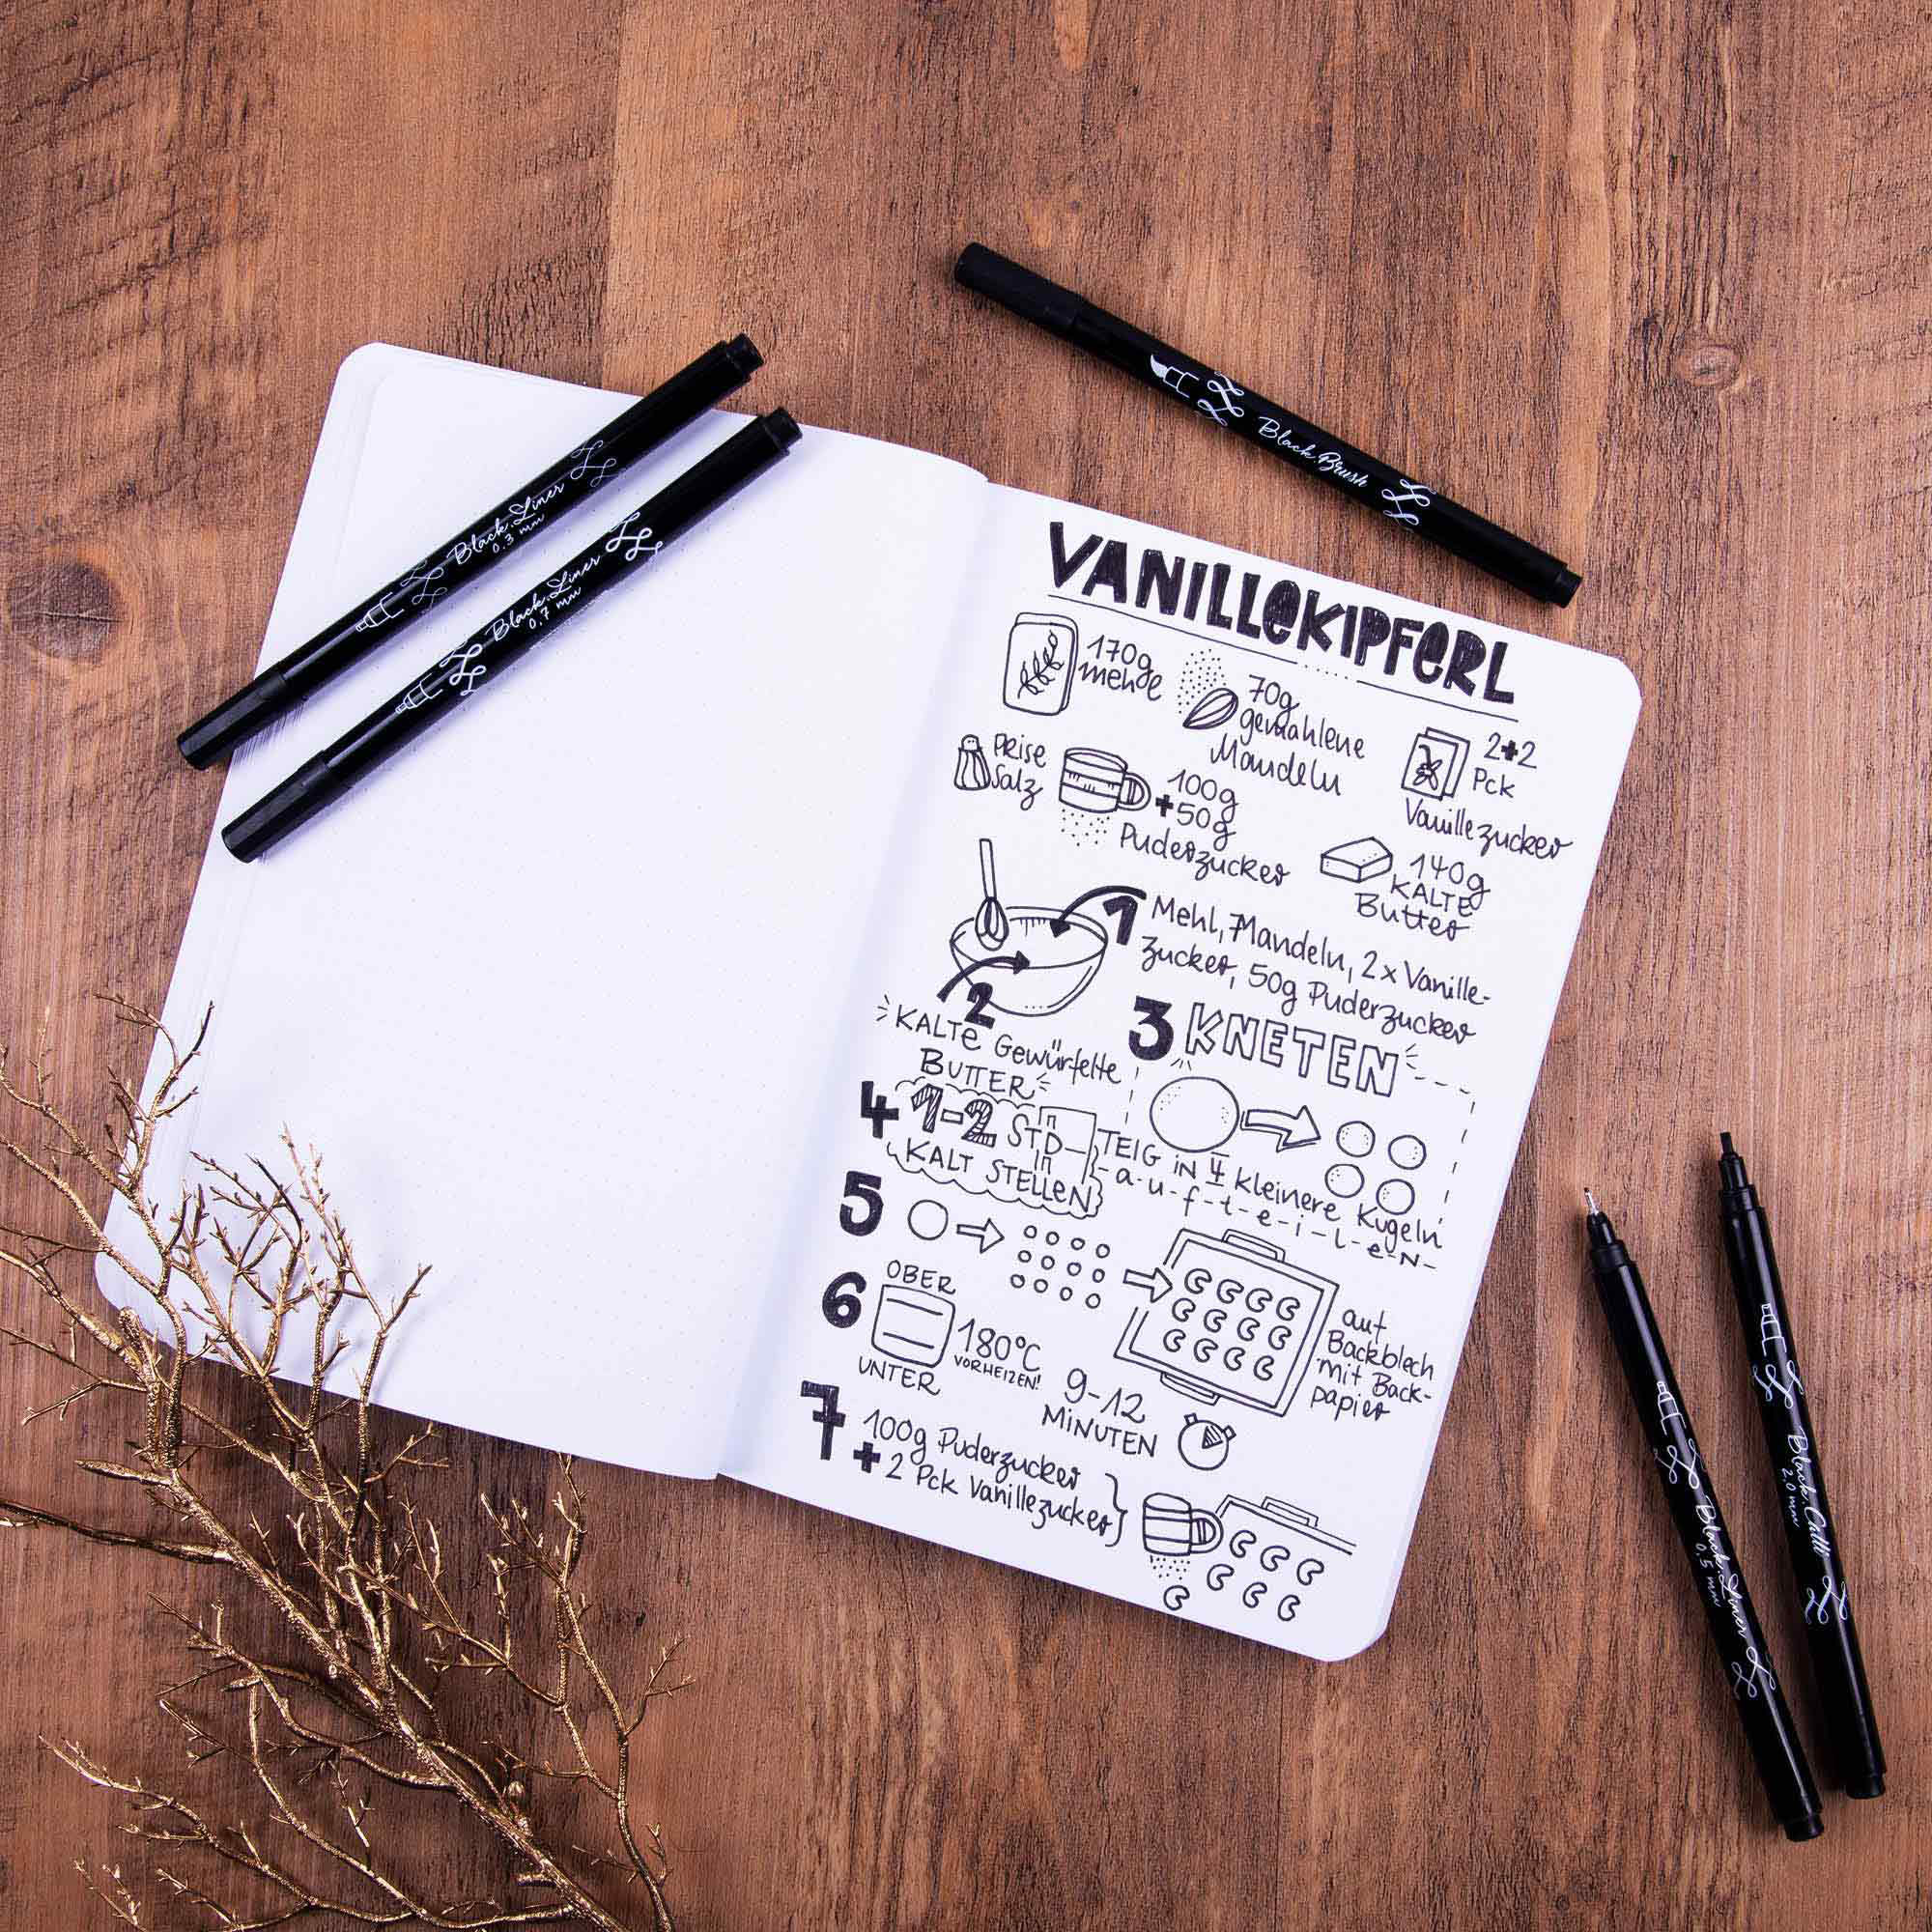 Black Liner
0.3 mm
Black Liner
0.7 mm
Black Brush
VANILLEKIPFERL
170g
mehle
70g
gemahlene
Mandeln
2+2
Pck
Vanillezucker
PRISE
Salz
100g
+50g
Puderzucker
140g
KALTE
Butter
1 Mehl, Mandeln, 2x Vanille-
zucker, 50g Puderzucker
2
KALTE Gewürfelte
BUTTER
3 KNETEN
TEIG IN 4 kleinere Kugeln
-a-u-f-t-e-i-l-e-N-
4 1-2 STD
KALT STELLEN
5
auf
Backblech
mit Back-
papier
6
OBER
UNTER
180°C
VORHEIZEN!
9-12
MINUTEN
7 100g Puderzucker
+ 2 Pck Vanillezucker
Black Liner
0.5 mm
Black Calli
2.0 mm